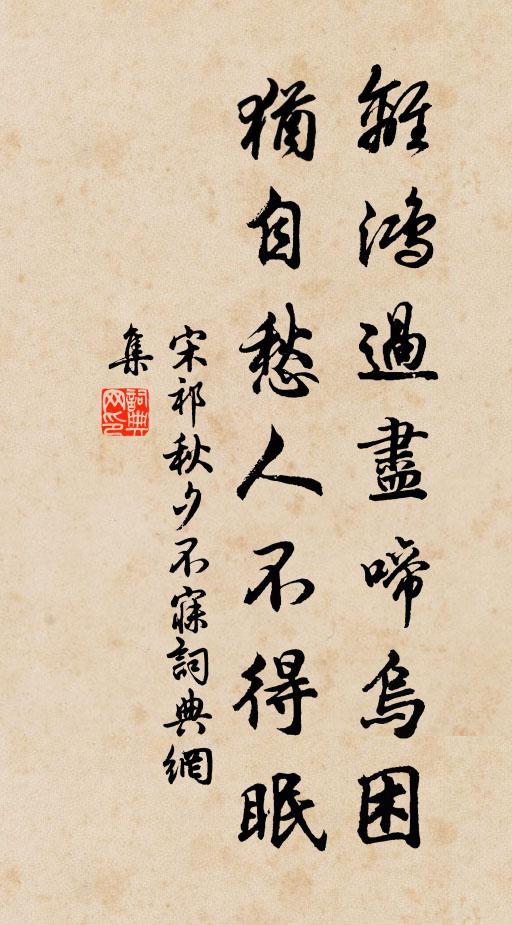 離鴻過盡啼烏困
猶自愁人不得眠
宋祁秋夕不寐詞典網
集
詞典
网印